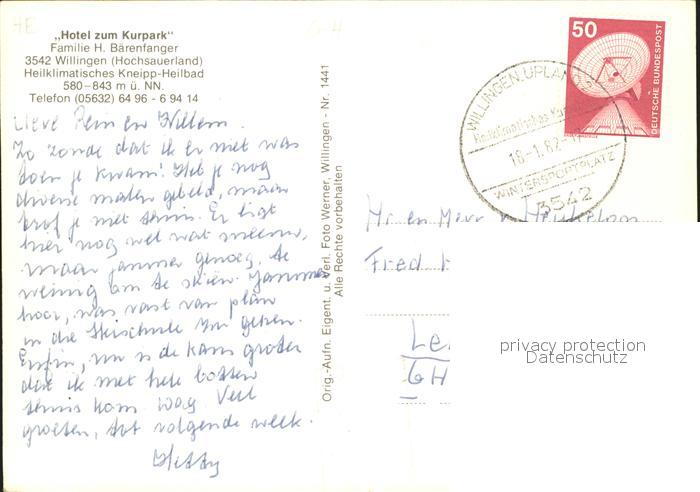 4E
G-4
„Hotel zum Kurpark"
Familie H. Bärenfanger
3542 Willingen (Hochsauerland)
Heilklimatisches Kneipp-Heilbad
580–843 m ü. NN.
Telefon (05632) 64 96 - 6 94 14
Lieve Rein en Willem.
Zo zonde dat ik er niet was
toen je kwam! Heb je nog
diverse malen gebeld, maar
trof je niet thuis. Er ligt
hier nog wel wat sneeuw,
maar jammer genoeg, te
weinig om te skiën. Jammer
hoor, was vast van plan
in die Skischule te gaan.
Enfin, nu is de kans groter
dat ik met hele botten
thuis kom. Veel
groeten, tot volgende week.
Hetty
Orig.-Aufn. Eigent. u. Verl. Foto Werner, Willingen - Nr. 1441
Alle Rechte vorbehalten
50
DEUTSCHE BUNDESPOST
WILLINGEN, UPLAND
Heilklimatisches
18-1.82-
WINTERSPORTPLATZ
3542
Hr en Mevr v
Fred
Le
6H
privacy protection
Datenschutz